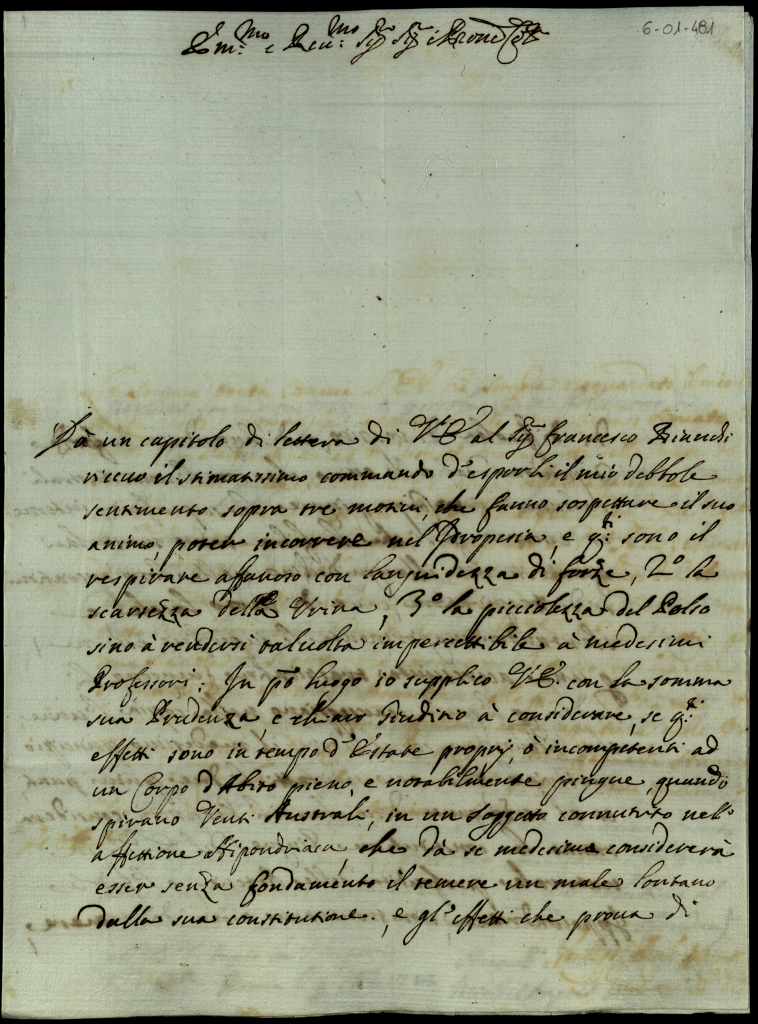 6-01-481
Em.mo e Reu.mo Sig.r Sig.r e Prone
Dà un capitolo di lettera di V.E. al Sig.r Francesco Bianchi
riceuo il stimatissimo commando d'esporli il mio debbole
sentimento sopra tre motiui, che fanno sospettare il suo
animo, poter incorrere nel Idropesia, e q.ti sono il
respirare affanoso con languidezza di forze, 2.o la
scarsezza della Vrina, 3.o la picciolezza del Polso
sino à rendersi taluolta impercettibile à medesimi
Professori; In p.o luogo io supplico V.E. con la somma
sua Prudenza, e chiaro Giuditio à considerare, se q.ti
effetti sono in tempo d'Estate proprij, ò incompetenti ad
un Corpo d'Abito pieno, e notabilmente pingue, quando
spirano Venti Australi, in un soggetto connutrito nell'
affettione Hipondriaca, che dà se medesima considererà
esser senza fondamento il temere un male lontano
dalla sua constitutione, e gl'effetti che proua di